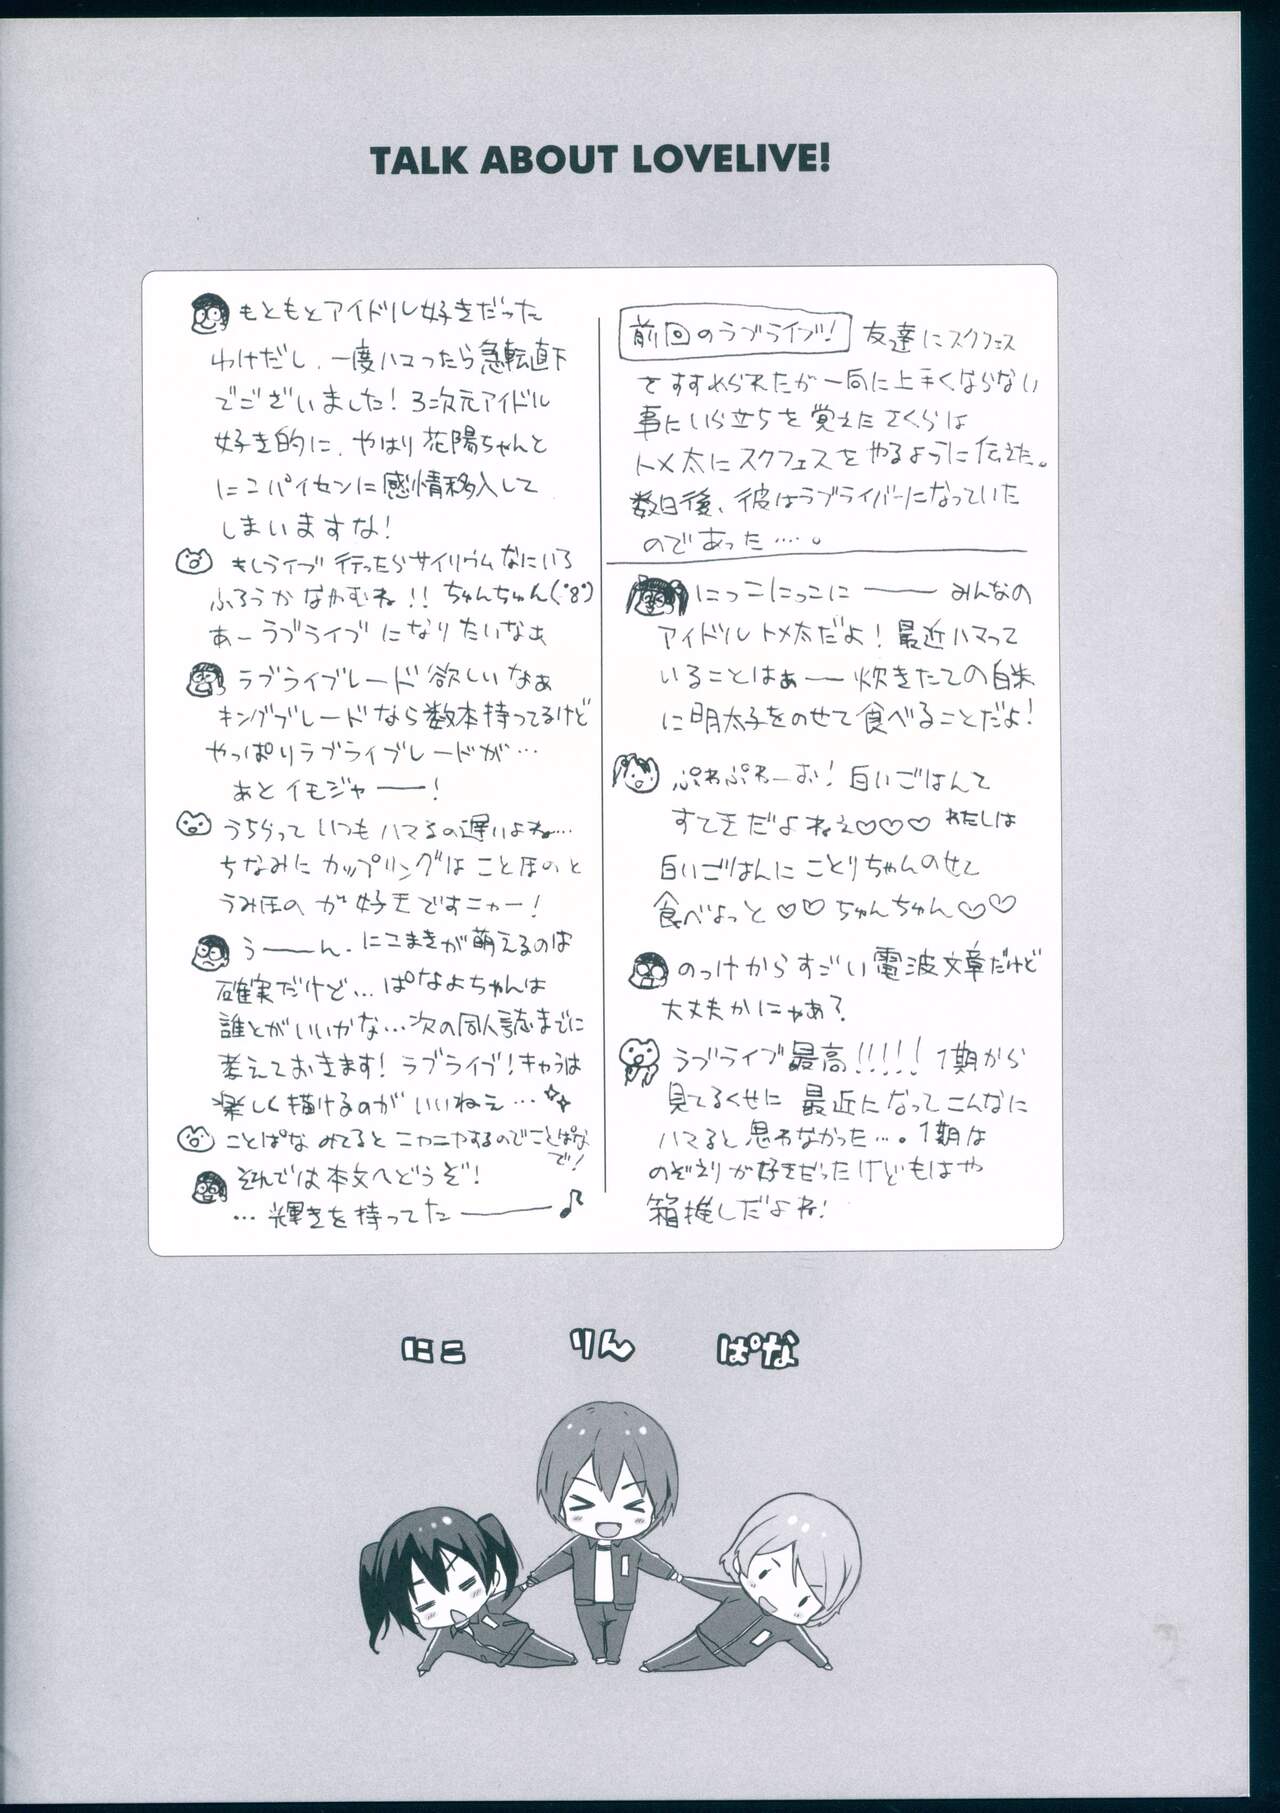 TALK ABOUT LOVELIVE!
前回のラブライブ! 友達にスクフェス
をすすめられたが一向に上手くならない
事にいら立ちを覚えたさくらは
トメ太にスクフェスをやるように伝えた。
数日後、彼はラブライバーになっていた
のであった……。
にっこにっこに―― みんなの
アイドルトメ太だよ!最近ハマって
いることはぁ――炊きたての白米
に明太子をのせて食べることだよ!
ぷわぷわーお!白いごはんて
すてきだよねぇ♡♡♡ わたしは
白いごはんにことりちゃんのせて
食べよっと♡♡ちゅんちゅん♡♡
のっけからすごい電波文章だけど
大丈夫かにゃあ?
ラブライブ最高!!!!! 1期から
見てるくせに 最近になってこんなに
ハマると思わなかった…。1期は
のぞえりが好きだったけどもはや
箱推しだよね!
もともとアイドル好きだった
わけだし、一度ハマったら急転直下
でございました!3次元アイドル
好き的に、やはり花陽ちゃんと
にこパイセンに感情移入して
しまいますな!
もしライブ行ったらサイリウムなにいろ
ふろうかなやむね!!ちゅんちゅん(・8・)
あーラブライブになりたいなぁ
ラブライブレード欲しいなぁ
キングブレードなら数本持ってるけど
やっぱりラブライブレードが…
あとイモジャ――!
うちらっていつもハマるの遅いよね…
ちなみにカップリングはことほのと
うみほのが好きですニャー!
う――ん、にこまきが萌えるのは
確実だけど…ぱなよちゃんは
誰とがいいかな…次の同人誌までに
考えておきます!ラブライブ!キャラは
楽しく描けるのがいいねぇ…
ことぱなみてるとニヤニヤするのでことぱな
で!
それでは本文へどうぞ!
…輝きを持ってた――♪
にこ りん ぱな